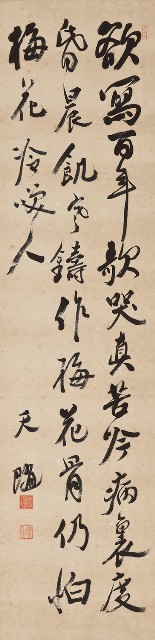 欲寫百年歌哭真苦吟病裏度
昏晨飢寒鑄作梅花骨仍怕
梅花冷咲人
天隨